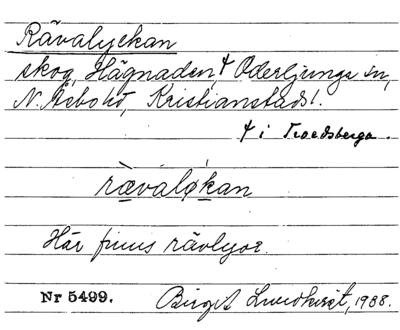 Rävalyckan
skog, Hägnaden, † Oderljunga sn,
N. Åsbo hd, Kristianstads l.
† i Troedsberga.
rævaløkan
Här finns rävlyor.
Nr 5499. Birgit Lundkvist, 1938.